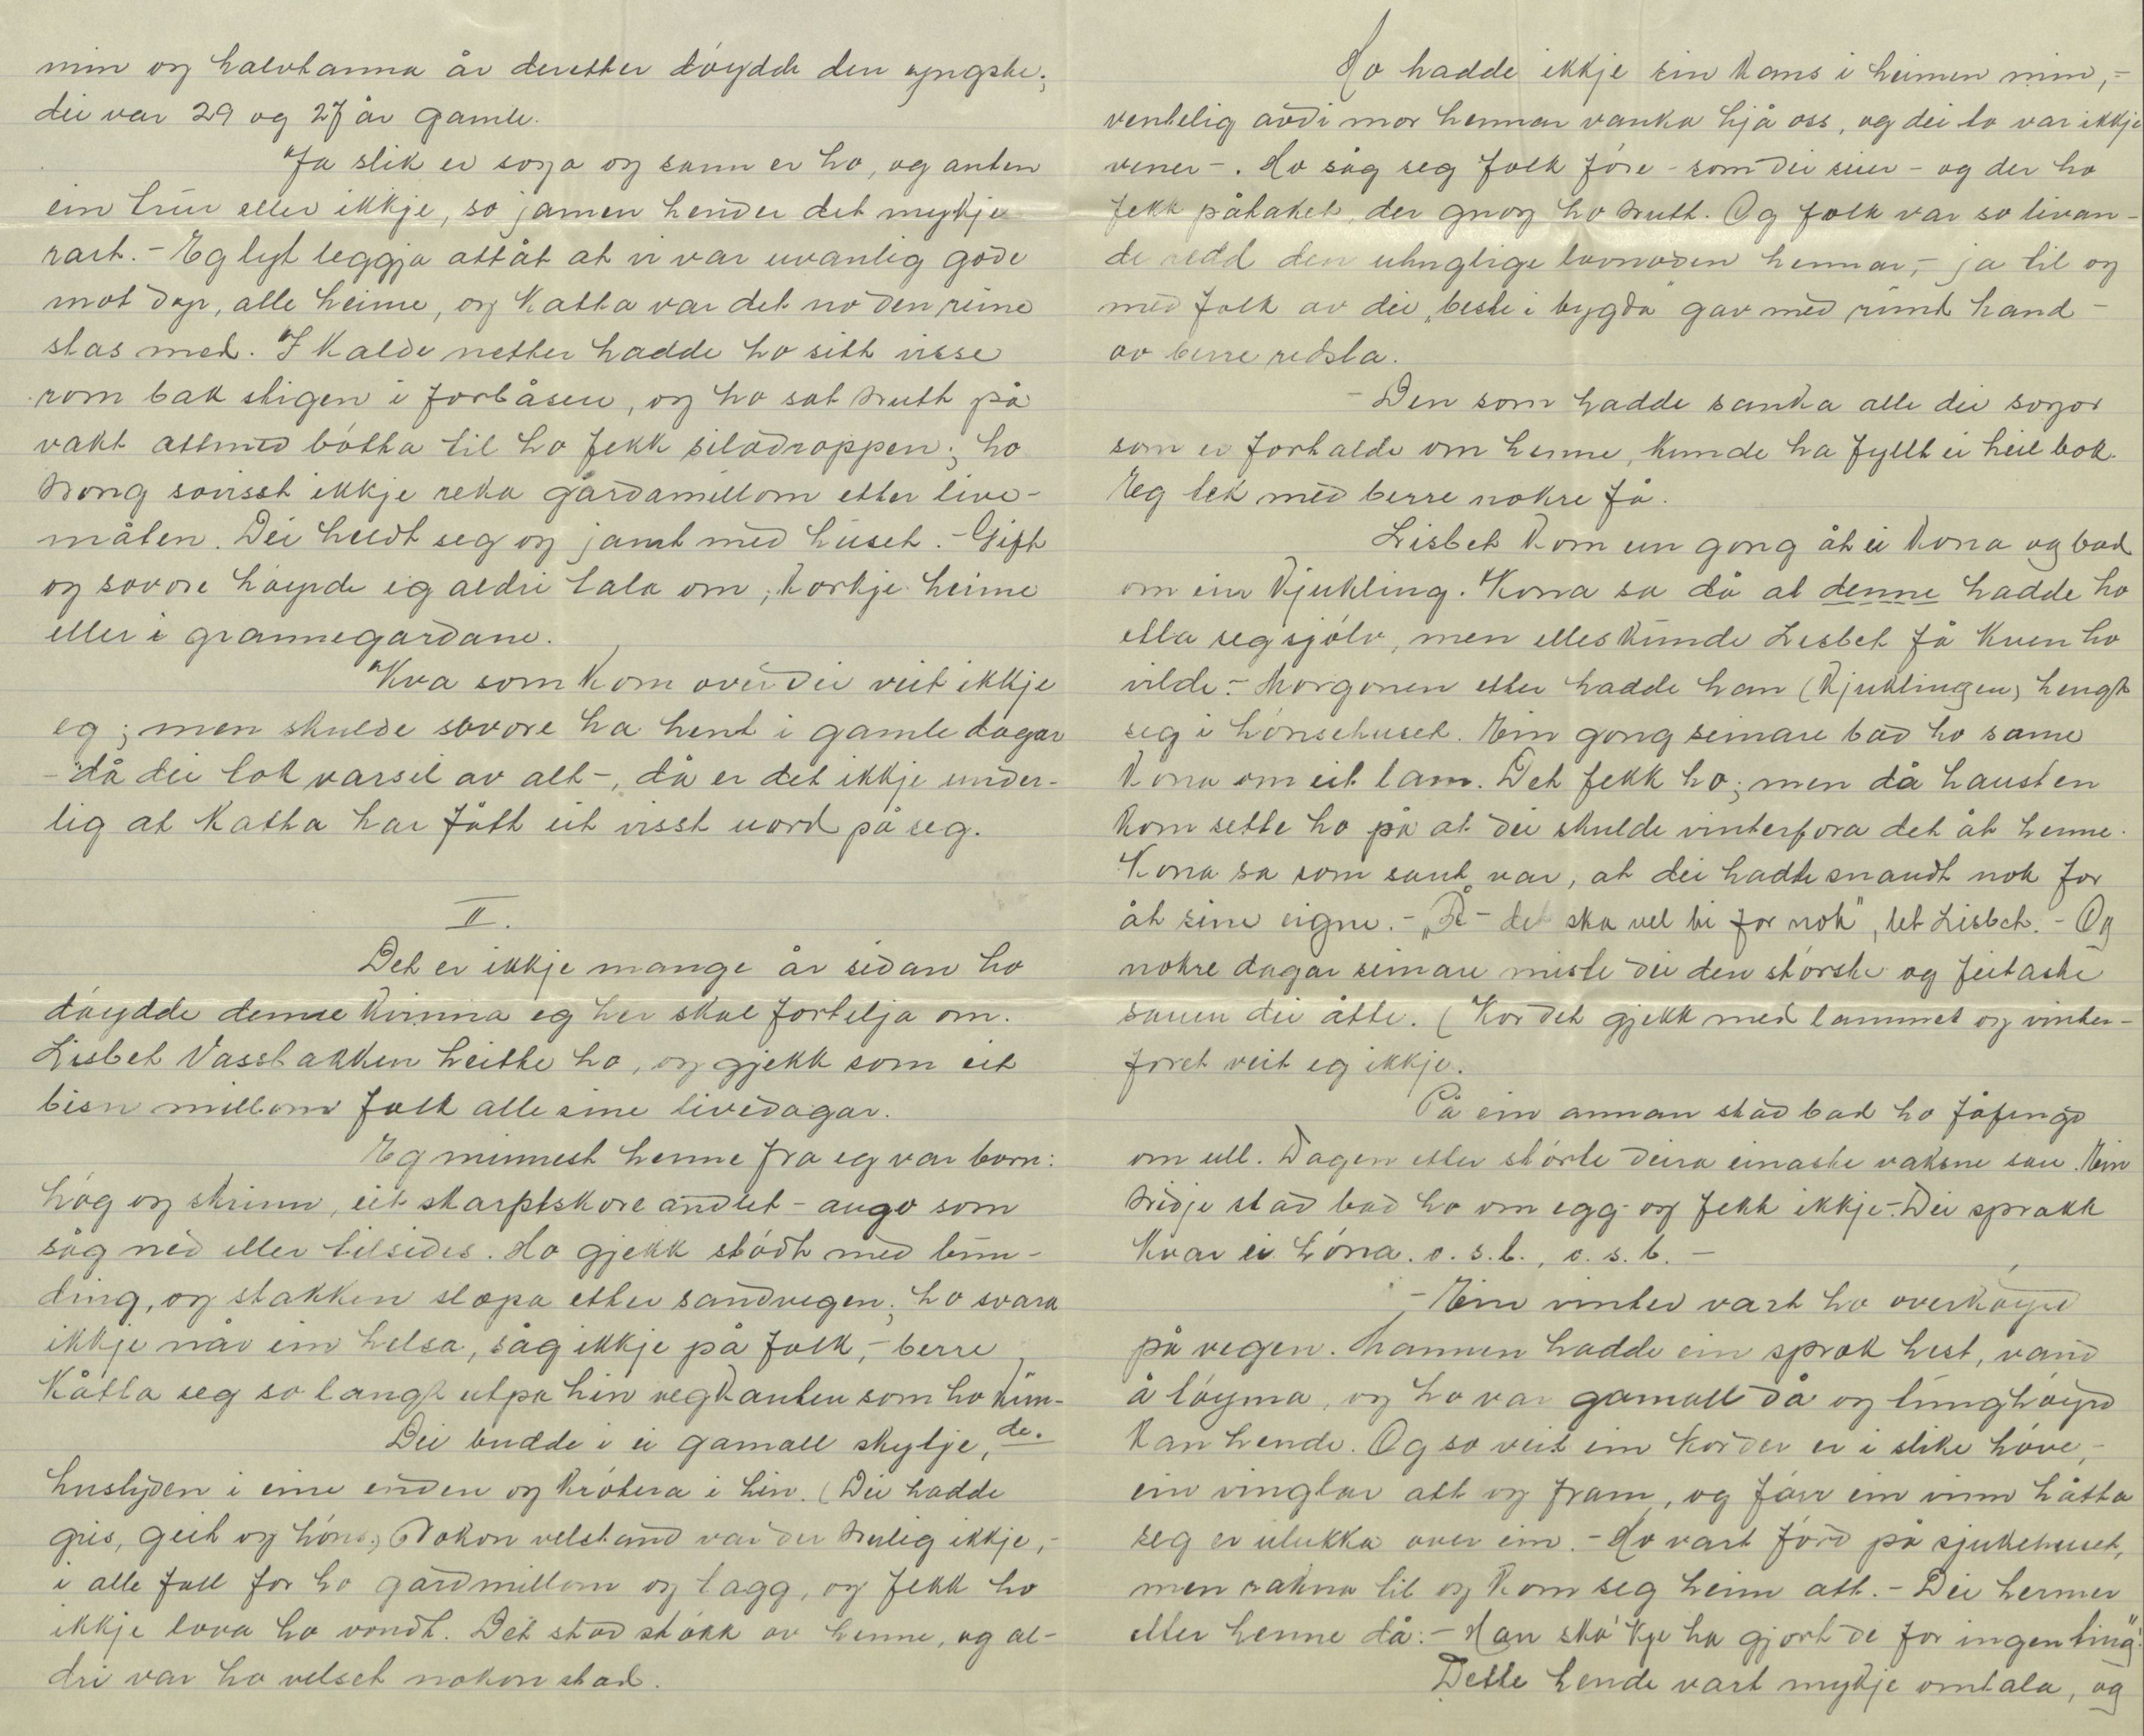 min og halvtanna år deretter døydde den yngste;
dei var 29 og 27 år gamle.
Ja slik er soga og sann er ho, og anten
ein trur eller ikkje, so jamen hender det mykje
rart. - Eg lyt leggja attåt at vi var uvanlig gode
mot dyr, alle heime, og katta var det no den reine
stas med. I kalde netter hadde ho sitt visse
rom bak stigen i forbåsen, og ho sat trutt på
vakt attmed bøtta til ho fekk siladroppen; ho
trong sovisst ikkje reka gårdamillom etter live-
måten. Dei heldt seg og jamt med huset. - Gift
og sovore høyrde eg aldri tala om, korkje heime
eller i grannegardane.
Kva som kom over dei veit ikkje
eg; men skulde sovore ha hent i gamle dagar
- då dei tok varsel av alt -, då er det ikkje under-
lig at katta har fått eit visst uord på seg.
II.
Det er ikkje mange år sidan ho
døydde denne kvinna eg her skal fortelja om.
Lisbet Vassbakken heitte ho, og gjekk som eit
bisn millom folk alle sine livedagar.
Eg minnest henne fra eg var born:
høg og skrinn, eit skarptskore andlet - augo som
såg ned eller tilsides. Ho gjekk stødt med bun-
ding, og stakken slapa etter sandvegen; ho svara
ikkje når ein helsa, såg ikkje på folk, - berre
kåtla seg so langt utpå hin vegkanten som ho kun-
de.
Dei budde i ei gamall skylje,
huslyden i eine enden og krøtera i hin. (Dei hadde
gris, geit og høns.) Nokon velstand var der trulig ikkje, -
i alle fall for ho gardmillom og tagg, og fekk ho
ikkje lova ho vondt. Det stod støkk av henne, og al-
dri var ho velset nokon stad.
Ho hadde ikkje sin kans i heimen min, -
ventelig avdi mor hennar vanka hjå oss, og dei to var ikkje
vener -. Ho såg seg folk føre - som dei seier - og der ho
fekk påtaket, der gnog ho trutt. Og folk var so livan-
de redd den uhuglige lovnaden hennar, - ja til og
med folk av dei „beste i bygda" gav med rund hand -
av berre redsla.
- Den som hadde sanka alle dei sogor
som er fortalde om henne, kunde ha fyllt ei heil bok.
Eg tek med berre nokre få.
Lisbet kom ein gong åt ei kona og bad
om ein kjukling. Kona sa då at denne hadde ho
etla seg sjølv, men elles kunde Lisbet få kven ho
vilde. - Morgonen etter hadde han (kjuklingen) hengt
seg i hønsehuset. Ein gong seinare bad ho same
kona om eit lam. Det fekk ho; men då hausten
kom sette ho på at dei skulde vinterfora det åt henne.
Kona sa som sant var, at dei hadde snaudt nok for
åt sine eigne. - „Å - det ska vel bi for nok", let Lisbet. - Og
nokre dagar seinare miste dei den største og feitaste
sauen dei åtte. (Kor det gjekk med lammet og vinter-
foret veit eg ikkje.
På ein annan stad bad ho fåfengd
om ull. Dagen etter størte deira einaste vaksne sau. Ein
tridje stad bad ho om egg og fekk ikkje. - Dei sprakk
kvar ei høna. o.s.b., o.s.b. -
- Ein vinter vart ho overkøyrd
på vegen. Mannen hadde ein sprok hest, vand
å tøyma, og ho var gamall då og tunghøyrd
kan hende. Og so veit ein kor der er i slike høve, -
ein vinglar att og fram, og førr ein vinn håtta
seg er ulukka over ein. - Ho vart førd på sjukehuset,
men rakna til og kom seg heim att. - Dei hermer
etter henne då: - Han ska' kje ha gjort de for ingen ting".
Dette hende vart mykje omtala, og